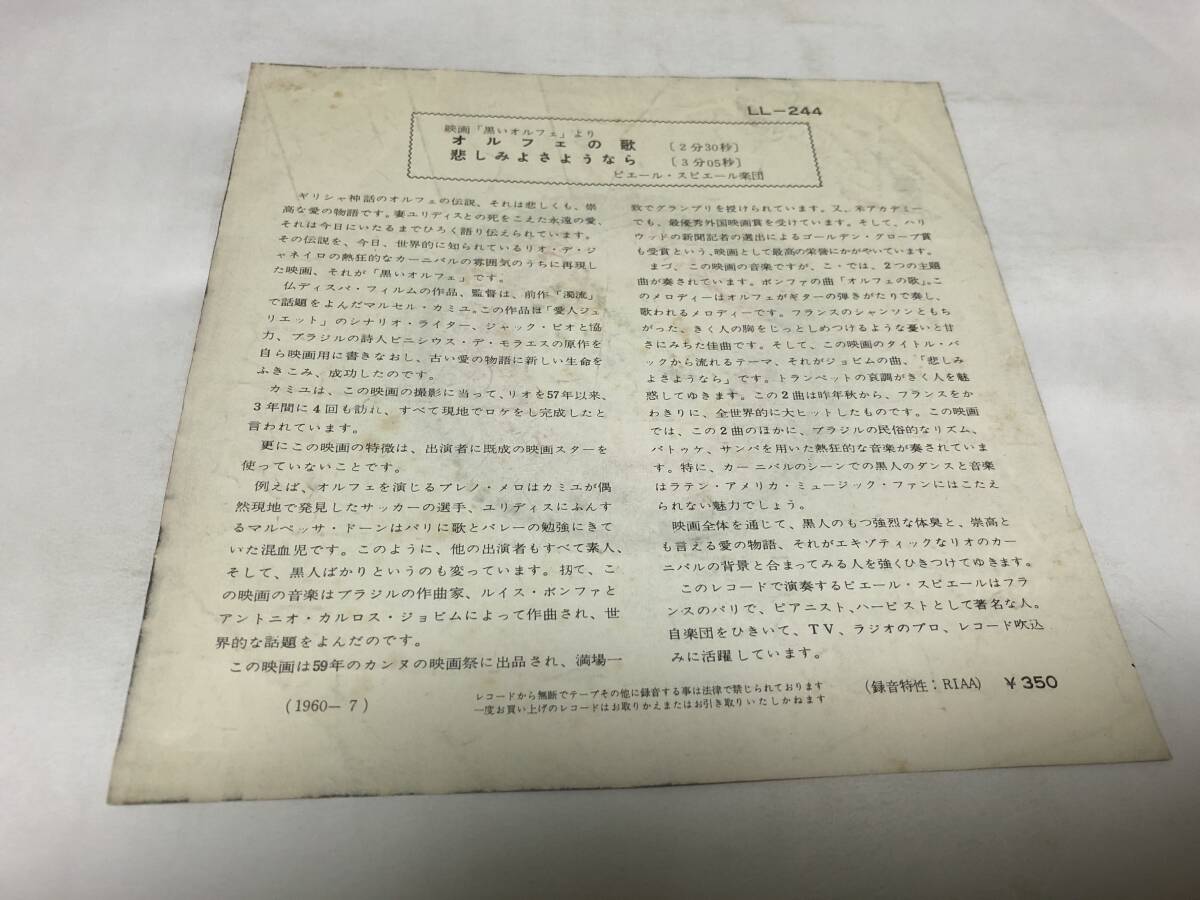 LL-244
映画「黒いオルフェ」より
オルフェの歌 〔2分30秒〕
悲しみよさようなら 〔3分05秒〕
ピエール・スピエール楽団
ギリシャ神話のオルフェの伝説、それは悲しくも、崇
高な愛の物語です。妻ユリディスとの死をこえた永遠の愛、
それは今日にいたるまでひろく語り伝えられています。
その伝説を、今日、世界的に知られているリオ・デ・ジ
ャネイロの熱狂的なカーニバルの雰囲気のうちに再現し
た映画、それが「黒いオルフェ」です。
仏ディスパ・フィルムの作品、監督は、前作「濁流」
で話題をよんだマルセル・カミユ。この作品は「愛人ジュ
リエット」のシナリオ・ライター、ジャック・ビオと協
力、ブラジルの詩人ビニシウス・デ・モラエスの原作を
自ら映画用に書きなおし、古い愛の物語に新しい生命を
ふきこみ、成功したのです。
カミユは、この映画の撮影に当って、リオを57年以来、
3年間に4回も訪れ、すべて現地でロケをし完成したと
言われています。
更にこの映画の特徴は、出演者に既成の映画スターを
使っていないことです。
例えば、オルフェを演じるブレノ・メロはカミユが偶
然現地で発見したサッカーの選手、ユリディスにふんす
るマルペッサ・ドーンはパリに歌とバレーの勉強にきて
いた混血児です。このように、他の出演者もすべて素人、
そして、黒人ばかりというのも変っています。扨て、こ
の映画の音楽はブラジルの作曲家、ルイス・ボンファと
アントニオ・カルロス・ジョビムによって作曲され、世
界的な話題をよんだのです。
この映画は59年のカンヌの映画祭に出品され、満場一
致でグランプリを授けられています。又、米アカデミー
でも、最優秀外国映画賞を受けています。そして、ハリ
ウッドの新聞記者の選出によるゴールデン・グローブ賞
も受賞という、映画として最高の栄誉にかがやいています。
まづ、この映画の音楽ですが、こゝでは、2つの主題
曲が奏されています。ボンファの曲「オルフェの歌」。こ
のメロディーはオルフェがギターの弾きがたりで奏し、
歌われるメロディーです。フランスのシャンソンともち
がった、きく人の胸をじっとしめつけるような憂いと甘
さにみちた佳曲です。そして、この映画のタイトル・バ
ックから流れるテーマ、それがジョビムの曲、「悲しみ
よさようなら」です。トランペットの哀調がきく人を魅
惑してゆきます。この2曲は昨年秋から、フランスをか
わきりに、全世界的に大ヒットしたものです。この映画
では、この2曲のほかに、ブラジルの民俗的なリズム、
バトゥケ、サンバを用いた熱狂的な音楽が奏されていま
す。特に、カーニバルのシーンでの黒人のダンスと音楽
はラテン・アメリカ・ミュージック・ファンにはこたえ
られない魅力でしょう。
映画全体を通じて、黒人のもつ強烈な体臭と、崇高と
も言える愛の物語、それがエキゾティックなリオのカー
ニバルの背景と合まってみる人を強くひきつけてゆきます。
このレコードで演奏するピエール・スピエールはフラ
ンスのパリで、ピアニスト、ハーピストとして著名な人。
自楽団をひきいて、TV、ラジオのプロ、レコード吹込
みに活躍しています。
(1960—7)
レコードから無断でテープその他に録音する事は法律で禁じられております
一度お買い上げのレコードはお取りかえまたはお引き取りいたしかねます
(録音特性：RIAA) ¥350